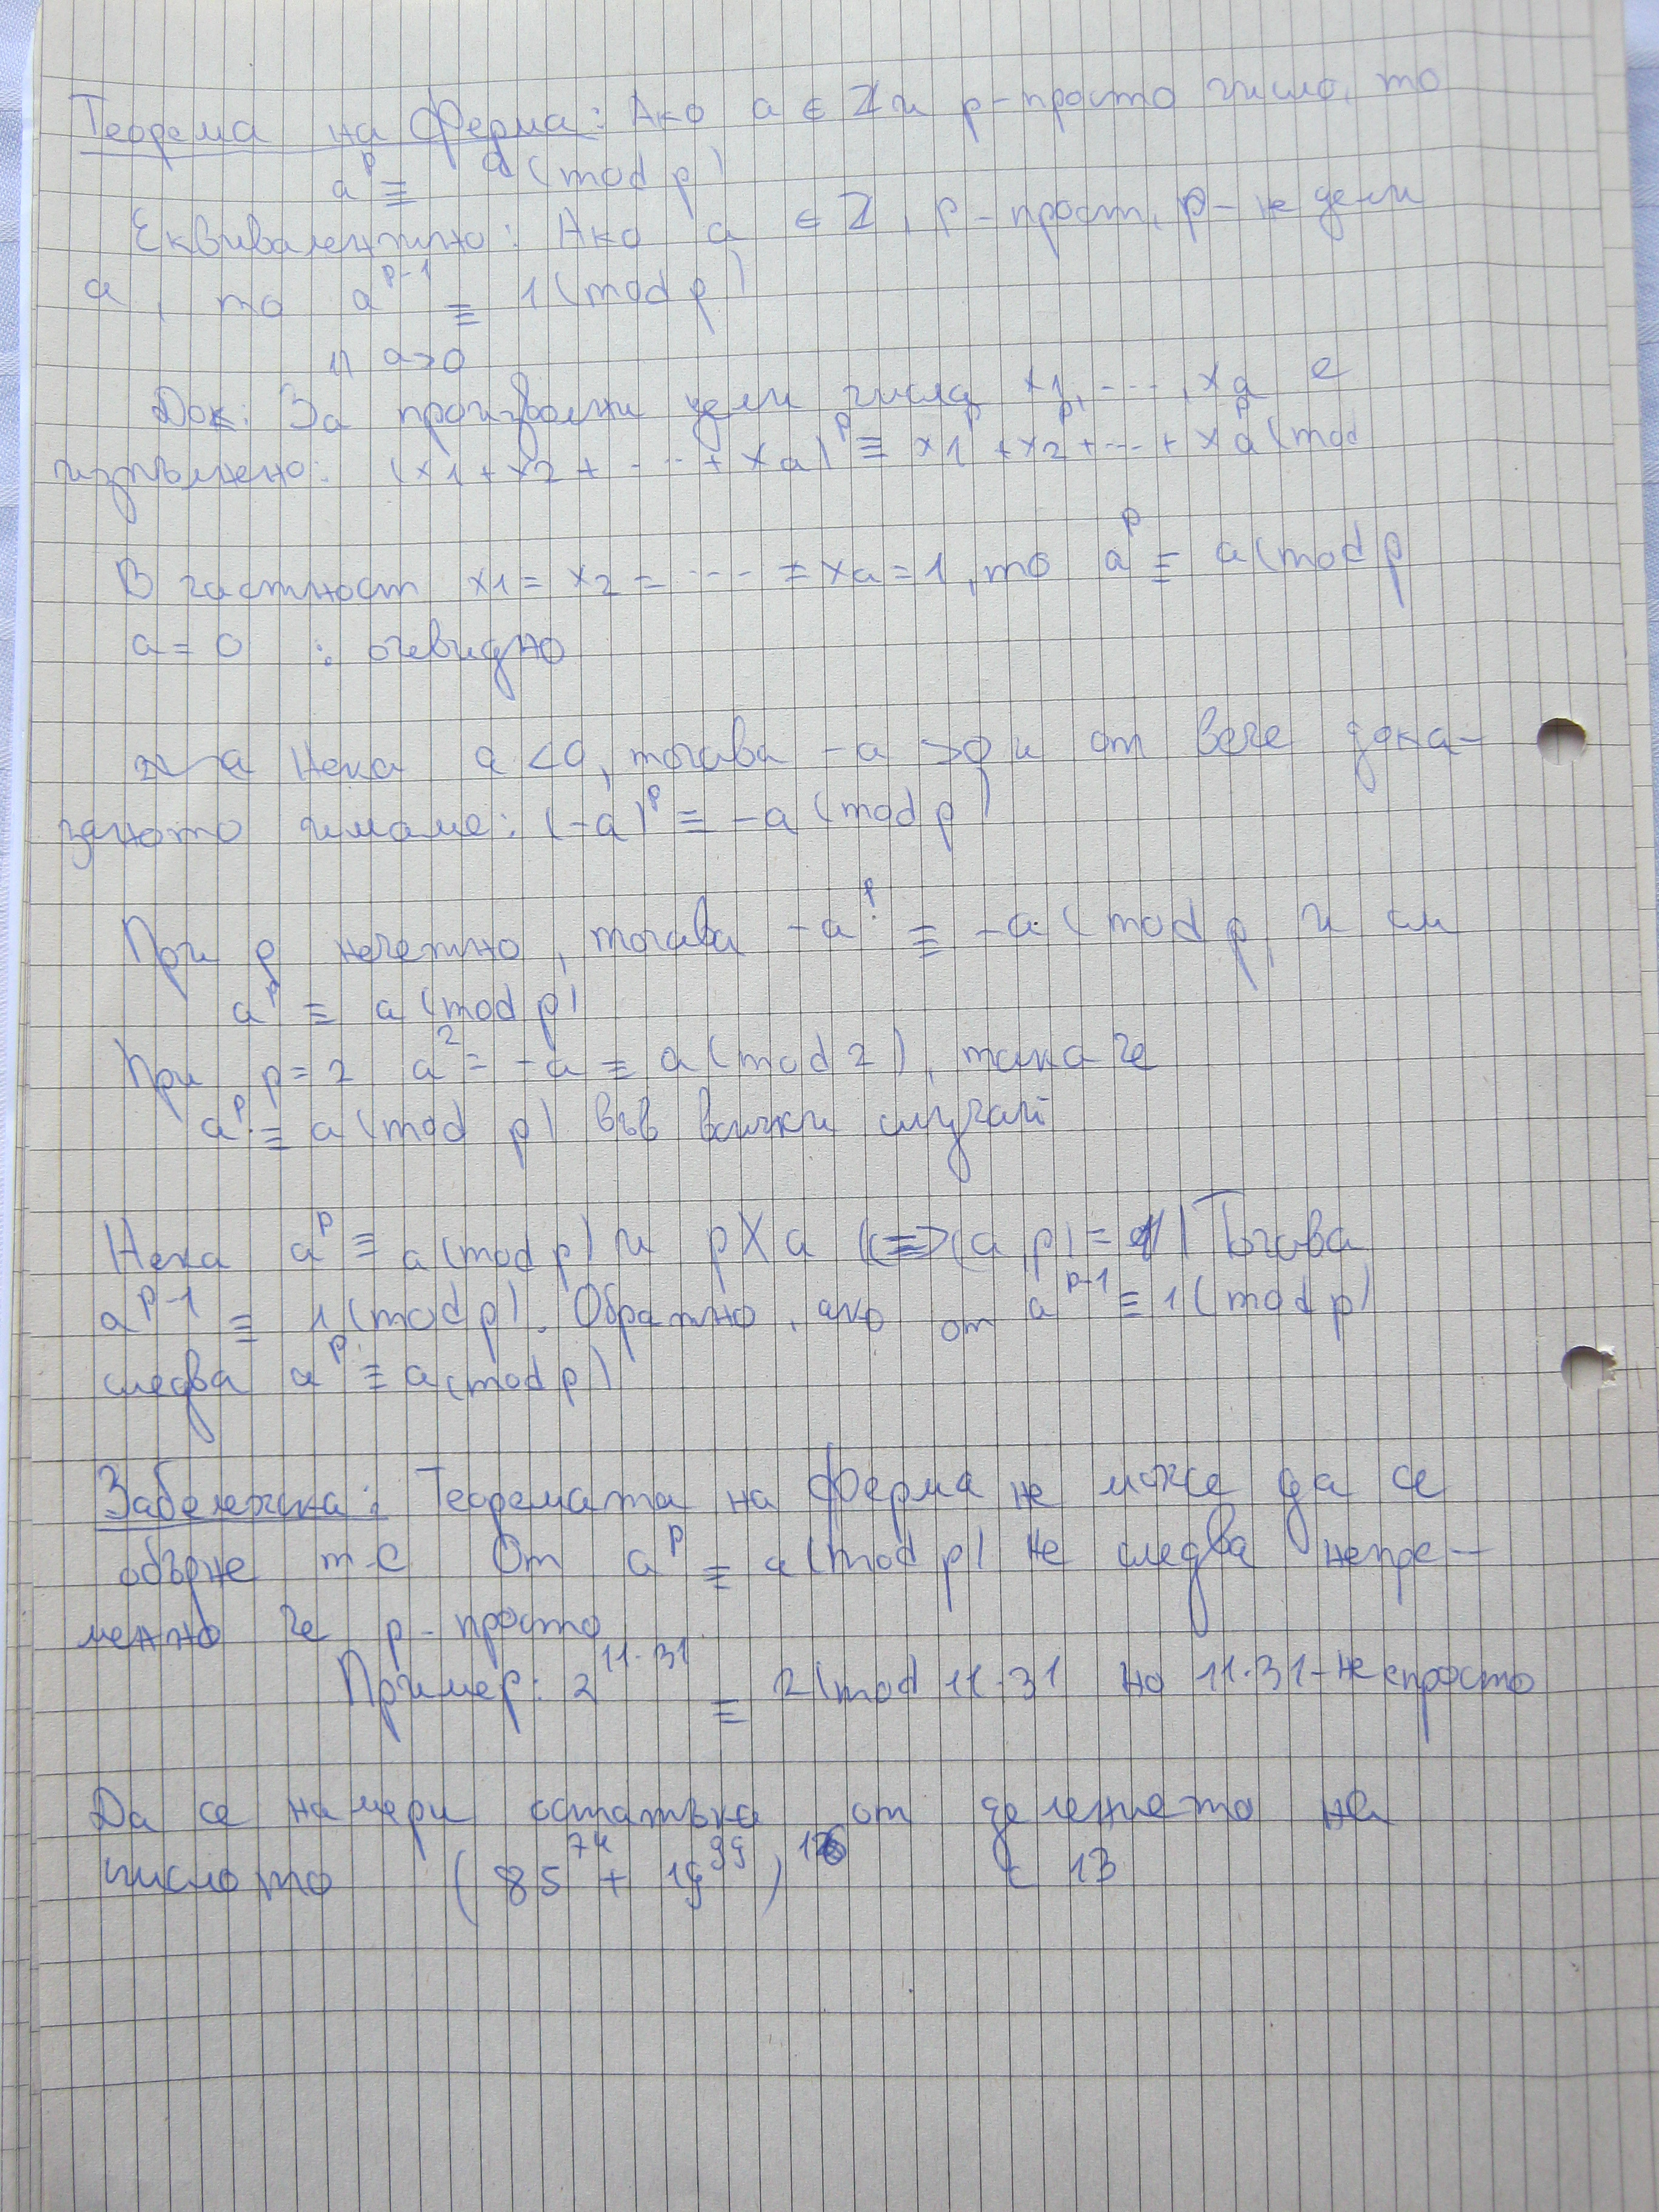 Теорема на Ферма: Ако a ∈ Z и p-просто число, то
a^p ≡ a (mod p)
Еквивалентно: Ако a ∈ Z, p-прост, p-не дели
a, то a^{p-1} ≡ 1 (mod p)
1) a>0
Док: За произволни цели числа x1, ---, xa е
изпълнено: (x1 + x2 + --- + xa)^p ≡ x1^p + x2^p + --- + xa^p (mod
В частност x1 = x2 = --- = xa = 1, то a^p ≡ a (mod p
a = 0 : очевидно
Нека a < 0, тогава -a > 0 и от вече дока-
заното имаме: (-a)^p ≡ -a (mod p)
При p нечетно, тогава -a^p ≡ -a (mod p) и
a^p ≡ a (mod p)
При p = 2 a^2 = -a ≡ a (mod 2), така че
a^p ≡ a (mod p) във всички случай
Нека a^p ≡ a (mod p) и p∤a (<=> (a, p) = 1) Тогава
a^{p-1} ≡ 1 (mod p). Обратно, ако от a^{p-1} ≡ 1 (mod p)
следва a^p ≡ a (mod p)
Забележка: Теоремата на Ферма не може да се
обърне т-е От a^p ≡ a (mod p) не следва непре-
менно че p-просто
Пример: 2^{11.31} ≡ 2 (mod 11.31 но 11.31-не е просто
Да се намери остатъка от делението на
числото (85^{74} + 19^{99})^{16} с 13